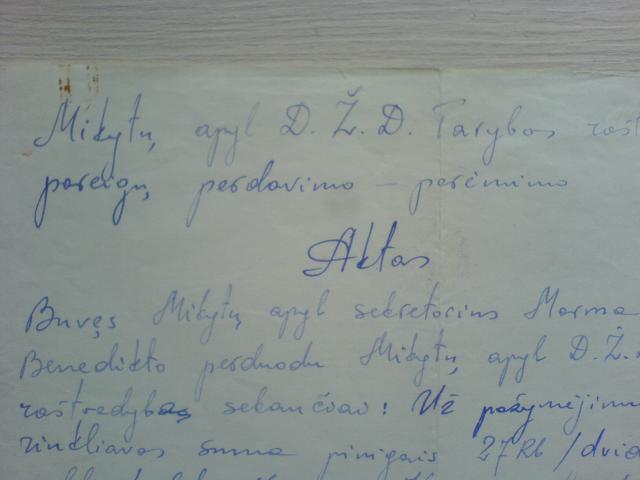 Mikytų apyl D. Ž. D. Tarybos rašt
pareigų perdavimo – perėmimo
Aktas
Buvęs Mikytų apyl sekretorius Morma
Benedikto perduodu Mikytų apyl D. Ž.
raštvedybą sekančiai: Už pažymėjimu
rinkliavos suma pinigais 27 Rb /dvid